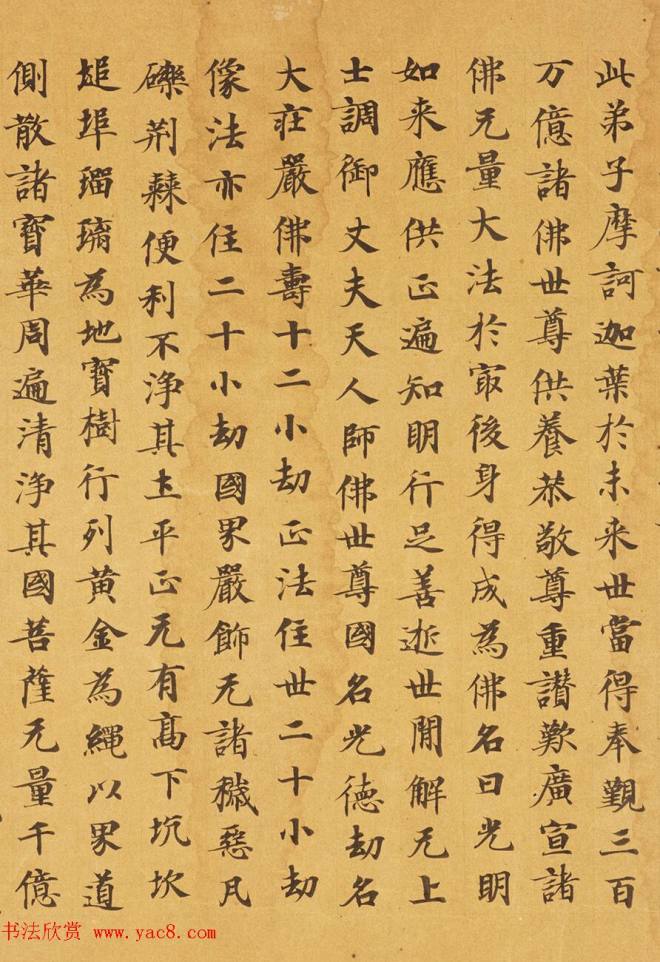 此弟子摩訶迦葉於未来世當得奉覲三百
万億諸佛世尊供養恭敬尊重讃歎廣宣諸
佛无量大法於冣後身得成為佛名曰光明
如来應供正遍知明行足善逝世間解无上
士調御丈夫天人師佛世尊國名光德劫名
大莊嚴佛壽十二小劫正法住世二十小劫
像法亦住二十小劫國界嚴飾无諸穢惡凡
礫荊棘便利不淨其土平正无有高下坑坎
塠埠瑠璃為地寶樹行列黄金為繩以界道
側散諸寶華周遍清淨其國菩薩无量千億
书法欣赏 www.yac8.com